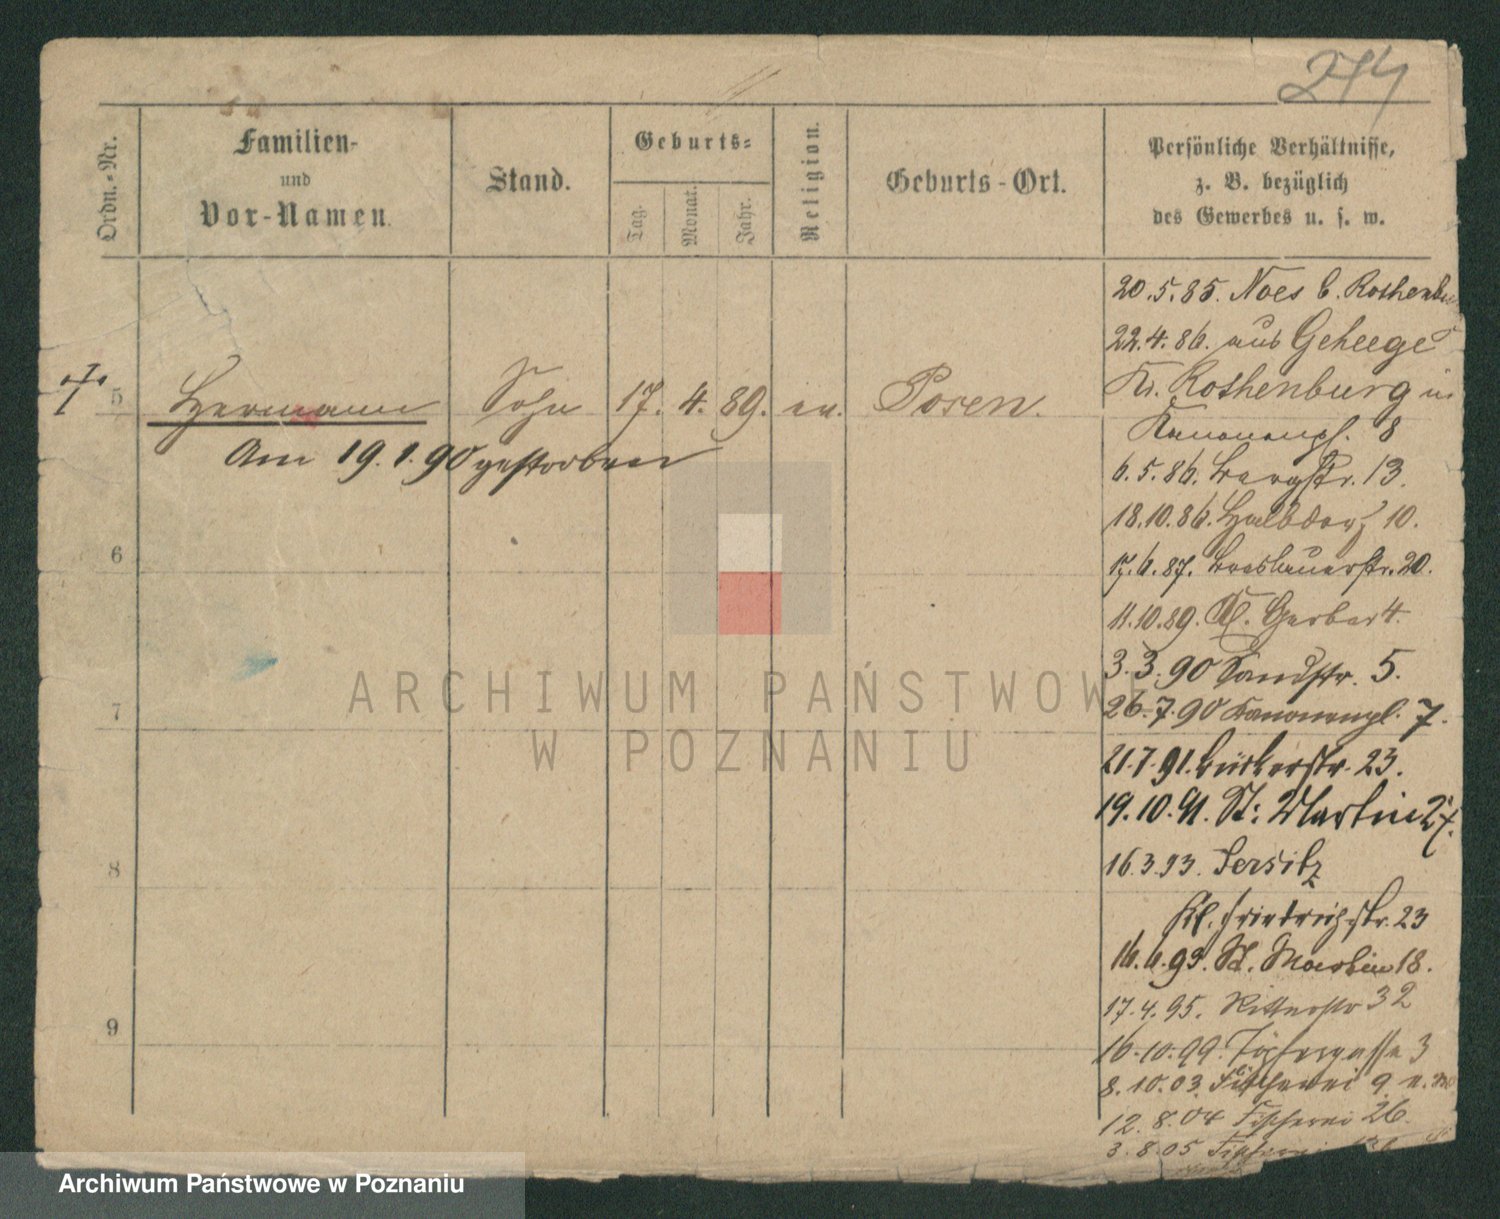 274
Ordn.-Nr.
Familien-
und
Vor-Namen.
Stand.
Geburts-
Tag.
Monat.
Jahr.
Religion.
Geburts-Ort.
Persönliche Verhältnisse,
z. B. bezüglich
des Gewerbes u. s. w.
5 Hermann Sohn 17. 4. 89. ev. Posen.
Am 19.1.90 gestorben
6
7
8
9
20.5.85. Noes b. Rothenbu
22.4.86. aus Geheege
Kr. Rothenburg in
Kanonenpl. 8
6.5.86. Bergstr. 13.
18.10.86. Halbdorf 10.
17.6.87. Breslauerstr. 20.
11.10.89. Kl. Gerber 4.
3.3.90 Sandstr. 5.
26.7.90 Kanonenpl. 7.
21.7.91. Bäckerstr. 23.
19.10.91. St. Martin 27.
16.3.93. Jersitz
Kl. Friedrichstr. 23
16.6.93. St. Martin 18.
17.4.95. Ritterstr 32
16.10.99. Töpfergasse 3
8.10.03. Fischerei 9
12.8.04 Fischerei 26.
3.8.05 Fischerei
ARCHIWUM PAŃSTWOW
W POZNANIU
Archiwum Państwowe w Poznaniu